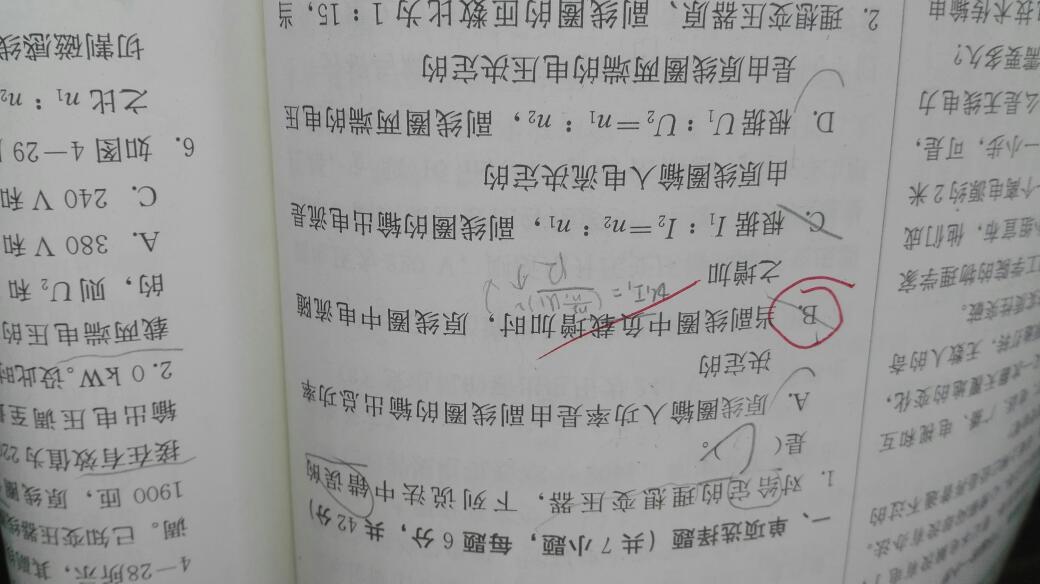 一、单项选择题(共7小题，每题6分，共42分)
1. 对给定的理想变压器，下列说法中错误的
是(  )。
A. 原线圈输入功率是由副线圈的输出总功率
决定的
B. 当副线圈中负载增加时，原线圈中电流随
之增加
C. 根据 I₁∶I₂=n₂∶n₁，副线圈的输出电流是
由原线圈输入电流决定的
D. 根据 U₁∶U₂=n₁∶n₂，副线圈两端的电压
是由原线圈两端的电压决定的
2. 理想变压器原、副线圈的匝数比为 1∶15，当
4—28所示，其
调。已知变压器线
1900 匝，原线圈
接在有效值为22
输出电压调至
2.0 kW。设此时
载两端电压的
的，则 U₂ 和
A. 380 V 和
C. 240 V 和
6. 如图 4—29
之比 n₁∶n₂
切割磁感线
电视和互
一次最天覆地的变化，
无数人的奇
工学院的物理学家
宣布，他们成
个离电源约2米
一小步，可是，
么是无线电力
需要多久？
技术传输电